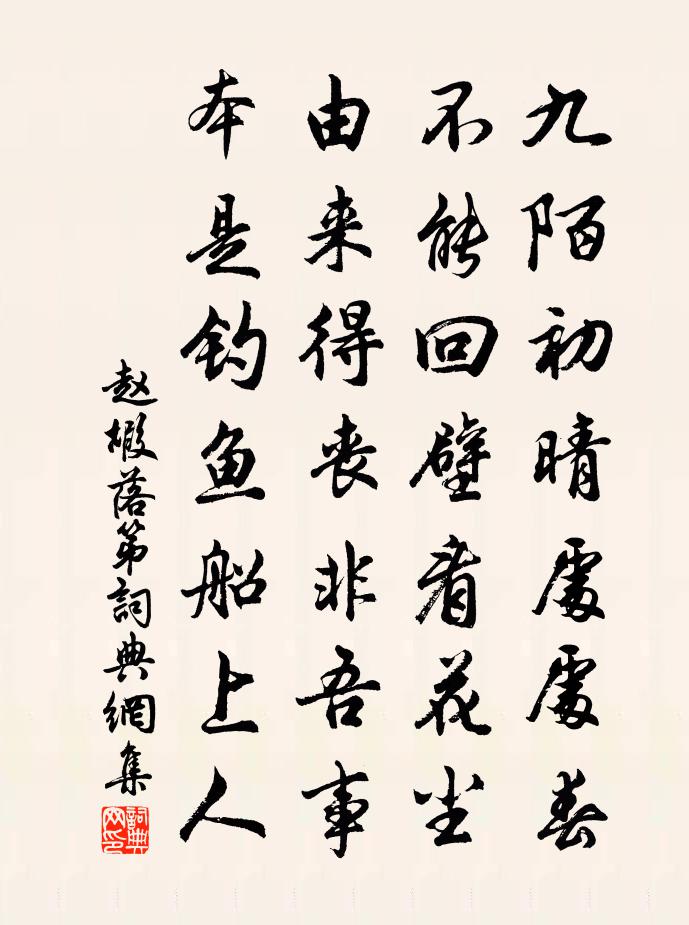 九陌初晴處處春
不能回壁看花尘
由来得喪非吾事
本是钓鱼船上人
赵嘏落第詞典網集
詞典网印